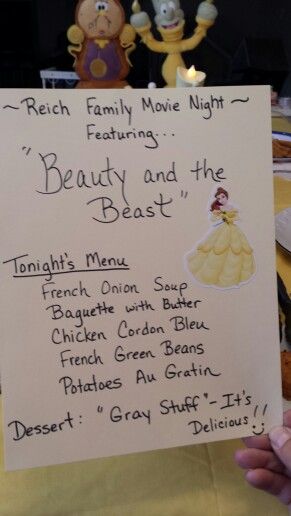 ~ Reich Family Movie Night ~
Featuring...
"Beauty and the
Beast"
Tonight's Menu
French Onion Soup
Baguette with Butter
Chicken Cordon Bleu
French Green Beans
Potatoes Au Gratin
Dessert: "Gray Stuff" - It's
Delicious!!